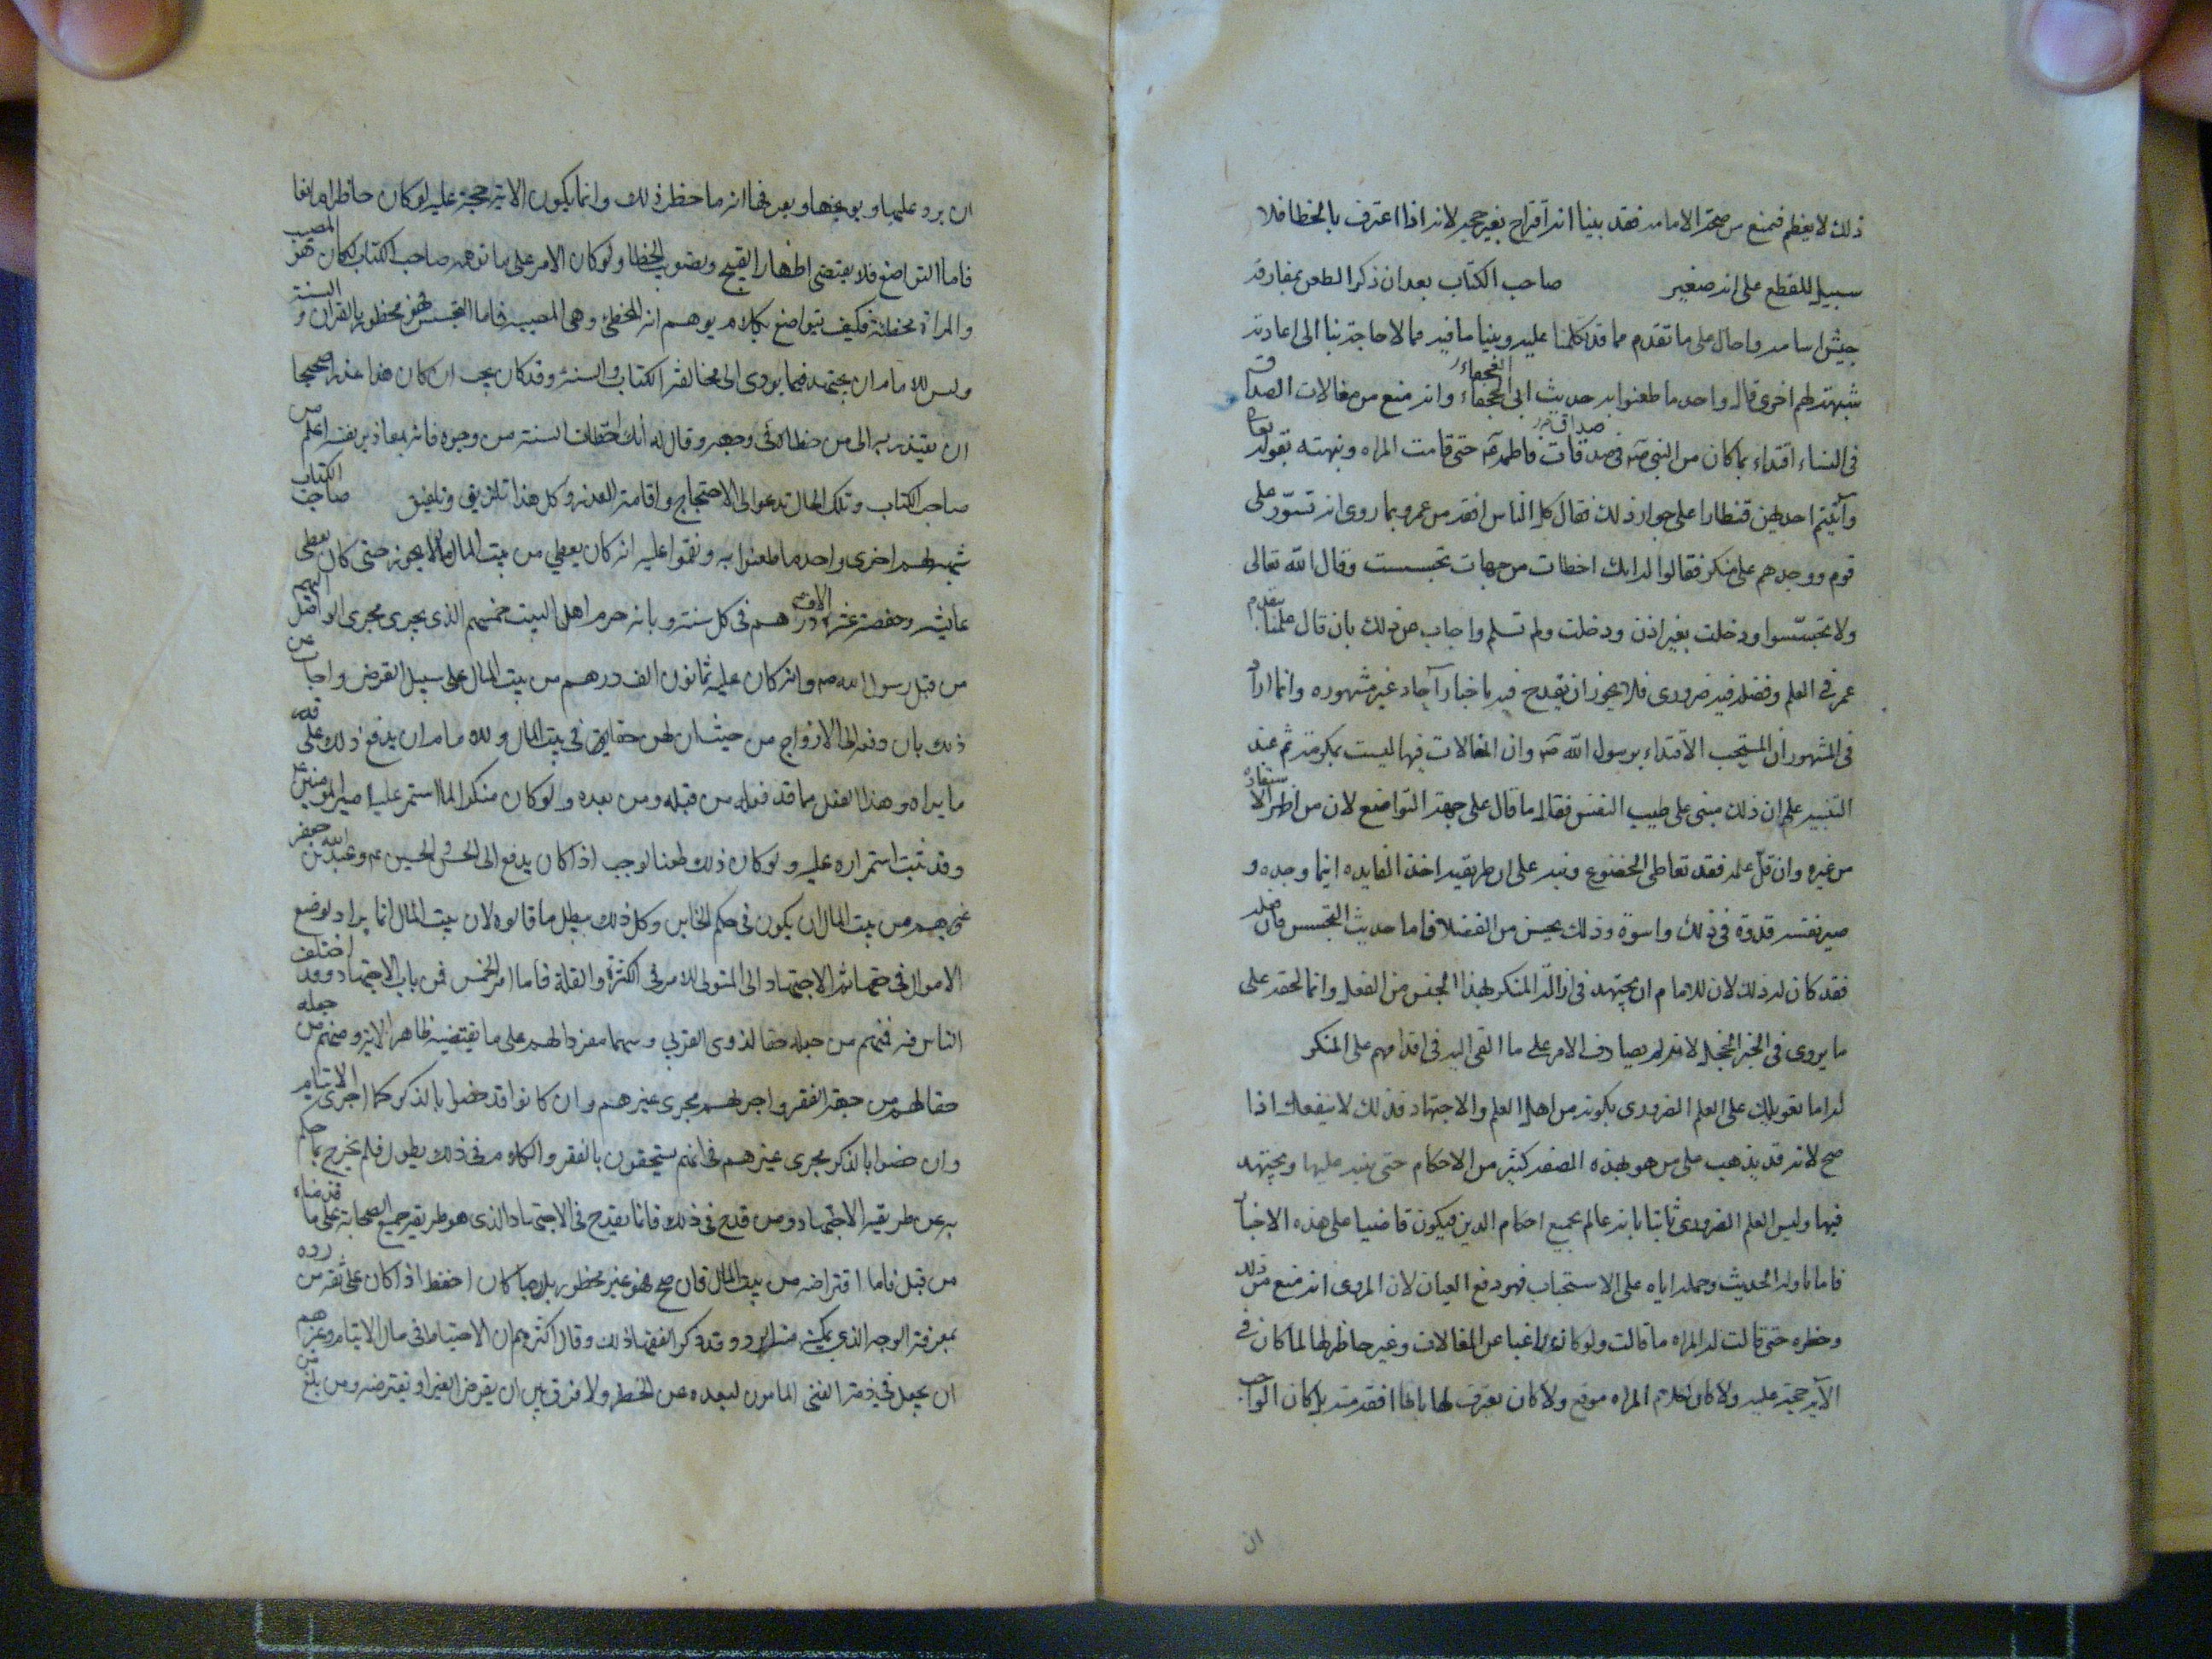 ذلك لا يعظم فيمنع من صحة الامامه فقد بينا انه اقتراح بغير حجه لانه اذا اعترف بالخطا فلا
سبيل للقطع على انه صغير صاحب الكتاب بعد ان ذكر الطعن بمفارقه
جيش اسامه واحال على ما تقدم مما قد تكلمنا عليه وبينا ما فيه مما لا حاجة بنا الى اعادته
شبهة لهم اخرى قال واحد ما طعنوا به حديث ابى العجفاء وانه منع من مغالات الصداق
فى النساء اقتداء بما كان من النبي صه فى صدقات فاطمه حتى قامت المراه ونبهته بقوله تعا
وآتيتم احديهن قنطارا على جواز ذلك فقال كل الناس افقه من عمر وبما روى انه تسوّر على
قوم ووجدهم على منكر فقالوا له انك اخطات من جهات تجسست وقال الله تعالى
ولا تجسّسوا ودخلت بغير اذن ودخلت ولم تسلم واجاب عن ذلك بان قال علمنا بتقدم
عمر فى العلم وفضله فيه ضرورى فلا يجوز ان يقدح فيه باخبار آحاد غير مشهوره وانما اراد
فى المشهور ان المستحب الاقتداء برسول الله صه وان المغالات فيها ليست بمكرمة ثم عند
التنبيه علم ان ذلك مبنى على طيب النفس فقال ما قال على جهة التواضع لان من اظهر الاستفادة
من غيره وان قلّ علمه فقد تعاطى الخضوع ونبه على ان طريقه اخذ الفايده اينما وجده و
صير نفسه قدوة فى ذلك واسوة وذلك يحسن من الفضلا فاما حديث التجسس فان فعله
فقد كان له ذلك لان للامام ان يجتهد فى ازالة المنكر بهذا الجنس من الفعل وانما لحقه على
ما يروى فى الخبر الخجل لانه لم يصادف الامر على ما القى اليه فى اقدامهم على المنكر
له اما تعويلك على العلم الضرورى بكونه من اهل العلم والاجتهاد فذلك لا ينفعك اذا
صح لانه قد يذهب على من هو بهذه الصفه كثير من الاحكام حتى ينبه عليها ويجتهد
فيها وليس العلم الضرورى ثابتا بانه عالم بجميع احكام الدين فيكون قاضيا على هذه الاخبار
فاما تاوله الحديث وحمله اياه على الاستحباب فهو دفع العيان لان المروى انه منع من ذلك
وحظره حتى قالت له المراه ما قالت ولو كان راغبا عن المغالات وغير حاظر لها لما كان فى
الآية حجة عليه ولا كان لكلام المراه موقع ولا كان يعترف لها بانها افقه منه بل كان الواجب
ان
ان يرد عليها ويوبخها ويعرفها انه ما حظر ذلك وانما يكون الاية حجة عليه لو كان حاظرا مانعا
فاما التواضع فلا يقتضى اظهار القبيح وتصويب الخطا ولو كان الامر على ما توهمه صاحب الكتاب لكان هو المصيب
والمراة مخطئة فكيف يتواضع بكلام يوهم انه المخطئ وهى المصيبه فاما التجسس فهو محظور بالقران و السنة
وليس للامام ان يجتهد فيما يودى الى مخالفة الكتاب والسنة وقد كان يجب ان كان هذا عذرا صحيحا
ان يعتذر به الى من خطاه فى وجهه وقال له انك اخطات السنة من وجوه فانه بمعاذير نفسه اعلم من
صاحب الكتاب وتلك الحال تدعو الى الاحتجاج واقامة العذر وكل هذا تلزيق وتلفيق صاحب الكتاب
شبهة لهم اخرى واحد ما طعنوا به ونقموا عليه انه كان يعطي من بيت المال ما لا يجوز حتى كان يعطى
عايشه وحفصة عشره الاف درهم فى كل سنة وبانه حرم اهل البيت خمسهم الذى يجرى مجرى الواصل اليهم
من قبل رسول الله صه وانه كان عليه ثمانون الف درهم من بيت المال على سبيل القرض واجاب عن
ذلك بان دفعه الى الازواج من حيث ان لهن حقا فى بيت المال وللامام ان يدفع ذلك على قدر
ما يراه وهذا الفعل مما قد فعله من قبله ومن بعده ولو كان منكرا لما استمر عليه امير المومنين ع
وقد ثبت استمراره عليه ولو كان ذلك طعنا لوجب اذا كان يدفع الى الحسن والحسين ع وعبد الله بن جعفر
غيرهم من بيت المال ان يكون فى حكم الخاين وكل ذلك يبطل ما قالوه لان بيت المال انما يراد لوضع
الاموال فى حقها ثم الاجتهاد الى المتولى للامر فى الكثرة والقلة فاما امر الخمس فمن باب الاجتهاد وقد اختلف
الناس فيه فمنهم من جعله حقا لذوى القربي وسهما مفردا لهم على ما يقتضيه ظاهر الاية ومنهم من جعله
حقا لهم من جهة الفقر واجراهم مجرى غيرهم وان كانوا قد خصوا بالذكر كما اجرى الايتام
وان خصوا بالذكر مجرى غيرهم فى انهم يستحقون بالفقر والكلام فى ذلك يطول فلم يخرج بما حكم
به عن طريقه الاجتهاد ومن قدح فى ذلك فانما يقدح فى الاجتهاد الذى هو طريقه جميع الصحابة على ما قدمناه
من قبل فاما اقتراضه من بيت المال فان صح فهو غير محظور بل ربما كان احفظ اذا كان على ثقة من رده
بمعرفة الوجه الذي يمكنه منه الرد وقد ذكر الفقها ذلك وقال اكثرهم ان الاحتياط فى مال الايتام وغيرهم
ان يجعل فى ذمة الغنى المامون لبعده عن الخطر ولا فرق بين ان يقرض الغير او يقترضه ومن بلغ من